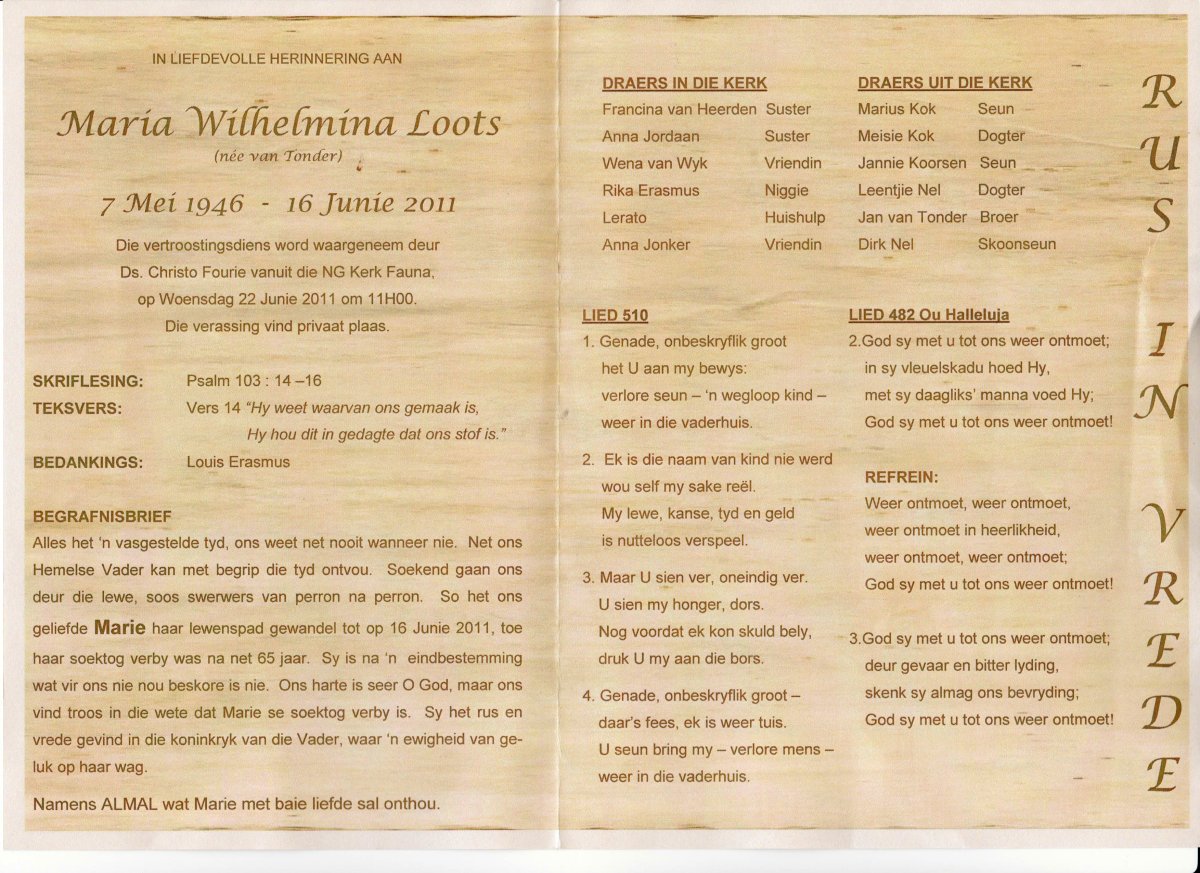 IN LIEFDEVOLLE HERINNERING AAN
Maria Wilhelmina Loots
(née van Tonder)
7 Mei 1946 - 16 Junie 2011
Die vertroostingsdiens word waargeneem deur
Ds. Christo Fourie vanuit die NG Kerk Fauna,
op Woensdag 22 Junie 2011 om 11H00.
Die verassing vind privaat plaas.
SKRIFLESING: Psalm 103 : 14 –16
TEKSVERS: Vers 14 “Hy weet waarvan ons gemaak is,
Hy hou dit in gedagte dat ons stof is.”
BEDANKINGS: Louis Erasmus
BEGRAFNISBRIEF
Alles het ‘n vasgestelde tyd, ons weet net nooit wanneer nie. Net ons
Hemelse Vader kan met begrip die tyd ontvou. Soekend gaan ons
deur die lewe, soos swerwers van perron na perron. So het ons
geliefde Marie haar lewenspad gewandel tot op 16 Junie 2011, toe
haar soektog verby was na net 65 jaar. Sy is na ‘n eindbestemming
wat vir ons nie nou beskore is nie. Ons harte is seer O God, maar ons
vind troos in die wete dat Marie se soektog verby is. Sy het rus en
vrede gevind in die koninkryk van die Vader, waar ‘n ewigheid van ge-
luk op haar wag.
Namens ALMAL wat Marie met baie liefde sal onthou.
DRAERS IN DIE KERK
Francina van Heerden Suster
Anna Jordaan Suster
Wena van Wyk Vriendin
Rika Erasmus Niggie
Lerato Huishulp
Anna Jonker Vriendin
DRAERS UIT DIE KERK
Marius Kok Seun
Meisie Kok Dogter
Jannie Koorsen Seun
Leentjie Nel Dogter
Jan van Tonder Broer
Dirk Nel Skoonseun
LIED 510
1. Genade, onbeskryflik groot
het U aan my bewys:
verlore seun – ‘n wegloop kind –
weer in die vaderhuis.
2. Ek is die naam van kind nie werd
wou self my sake reël.
My lewe, kanse, tyd en geld
is nutteloos verspeel.
3. Maar U sien ver, oneindig ver.
U sien my honger, dors.
Nog voordat ek kon skuld bely,
druk U my aan die bors.
4. Genade, onbeskryflik groot –
daar’s fees, ek is weer tuis.
U seun bring my – verlore mens –
weer in die vaderhuis.
LIED 482 Ou Halleluja
2.God sy met u tot ons weer ontmoet;
in sy vleuelskadu hoed Hy,
met sy daagliks’ manna voed Hy;
God sy met u tot ons weer ontmoet!
REFREIN:
Weer ontmoet, weer ontmoet,
weer ontmoet in heerlikheid,
weer ontmoet, weer ontmoet;
God sy met u tot ons weer ontmoet!
3.God sy met u tot ons weer ontmoet;
deur gevaar en bitter lyding,
skenk sy almag ons bevryding;
God sy met u tot ons weer ontmoet!
RUS IN VREDE